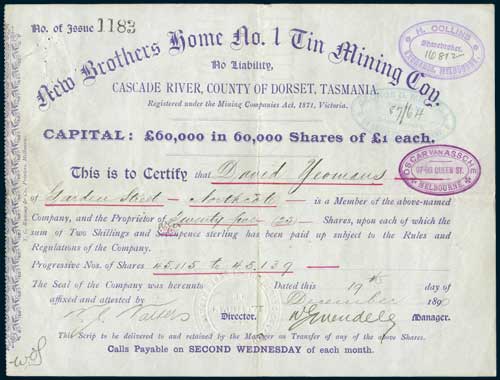 No. of Issue 1183
New Brothers Home No. 1 Tin Mining Coy.
No Liability,
CASCADE RIVER, COUNTY OF DORSET, TASMANIA.
Registered under the Mining Companies Act, 1871, Victoria.
H. COLLINS
Sharebroker,
MELBOURNE.
CAPITAL: £60,000 in 60,000 Shares of £1 each.
OSCAR VAN ASSCHE
87-90 QUEEN ST.
MELBOURNE
This is to Certify that David Yeomans
of Garden Street Northcote is a Member of the above-named
Company, and the Proprietor of (25) Shares, upon each of which the
sum of Two Shillings and Sixpence sterling has been paid up subject to the Rules and
Regulations of the Company.
Progressive Nos. of Shares 45,115 to 45,139
The Seal of the Company was hereunto
affixed and attested by
Dated this 19th day of
December 1890
Director.
Manager.
This Scrip to be delivered to and retained by the Manager on Transfer of any of the above Shares.
Calls Payable on SECOND WEDNESDAY of each month.